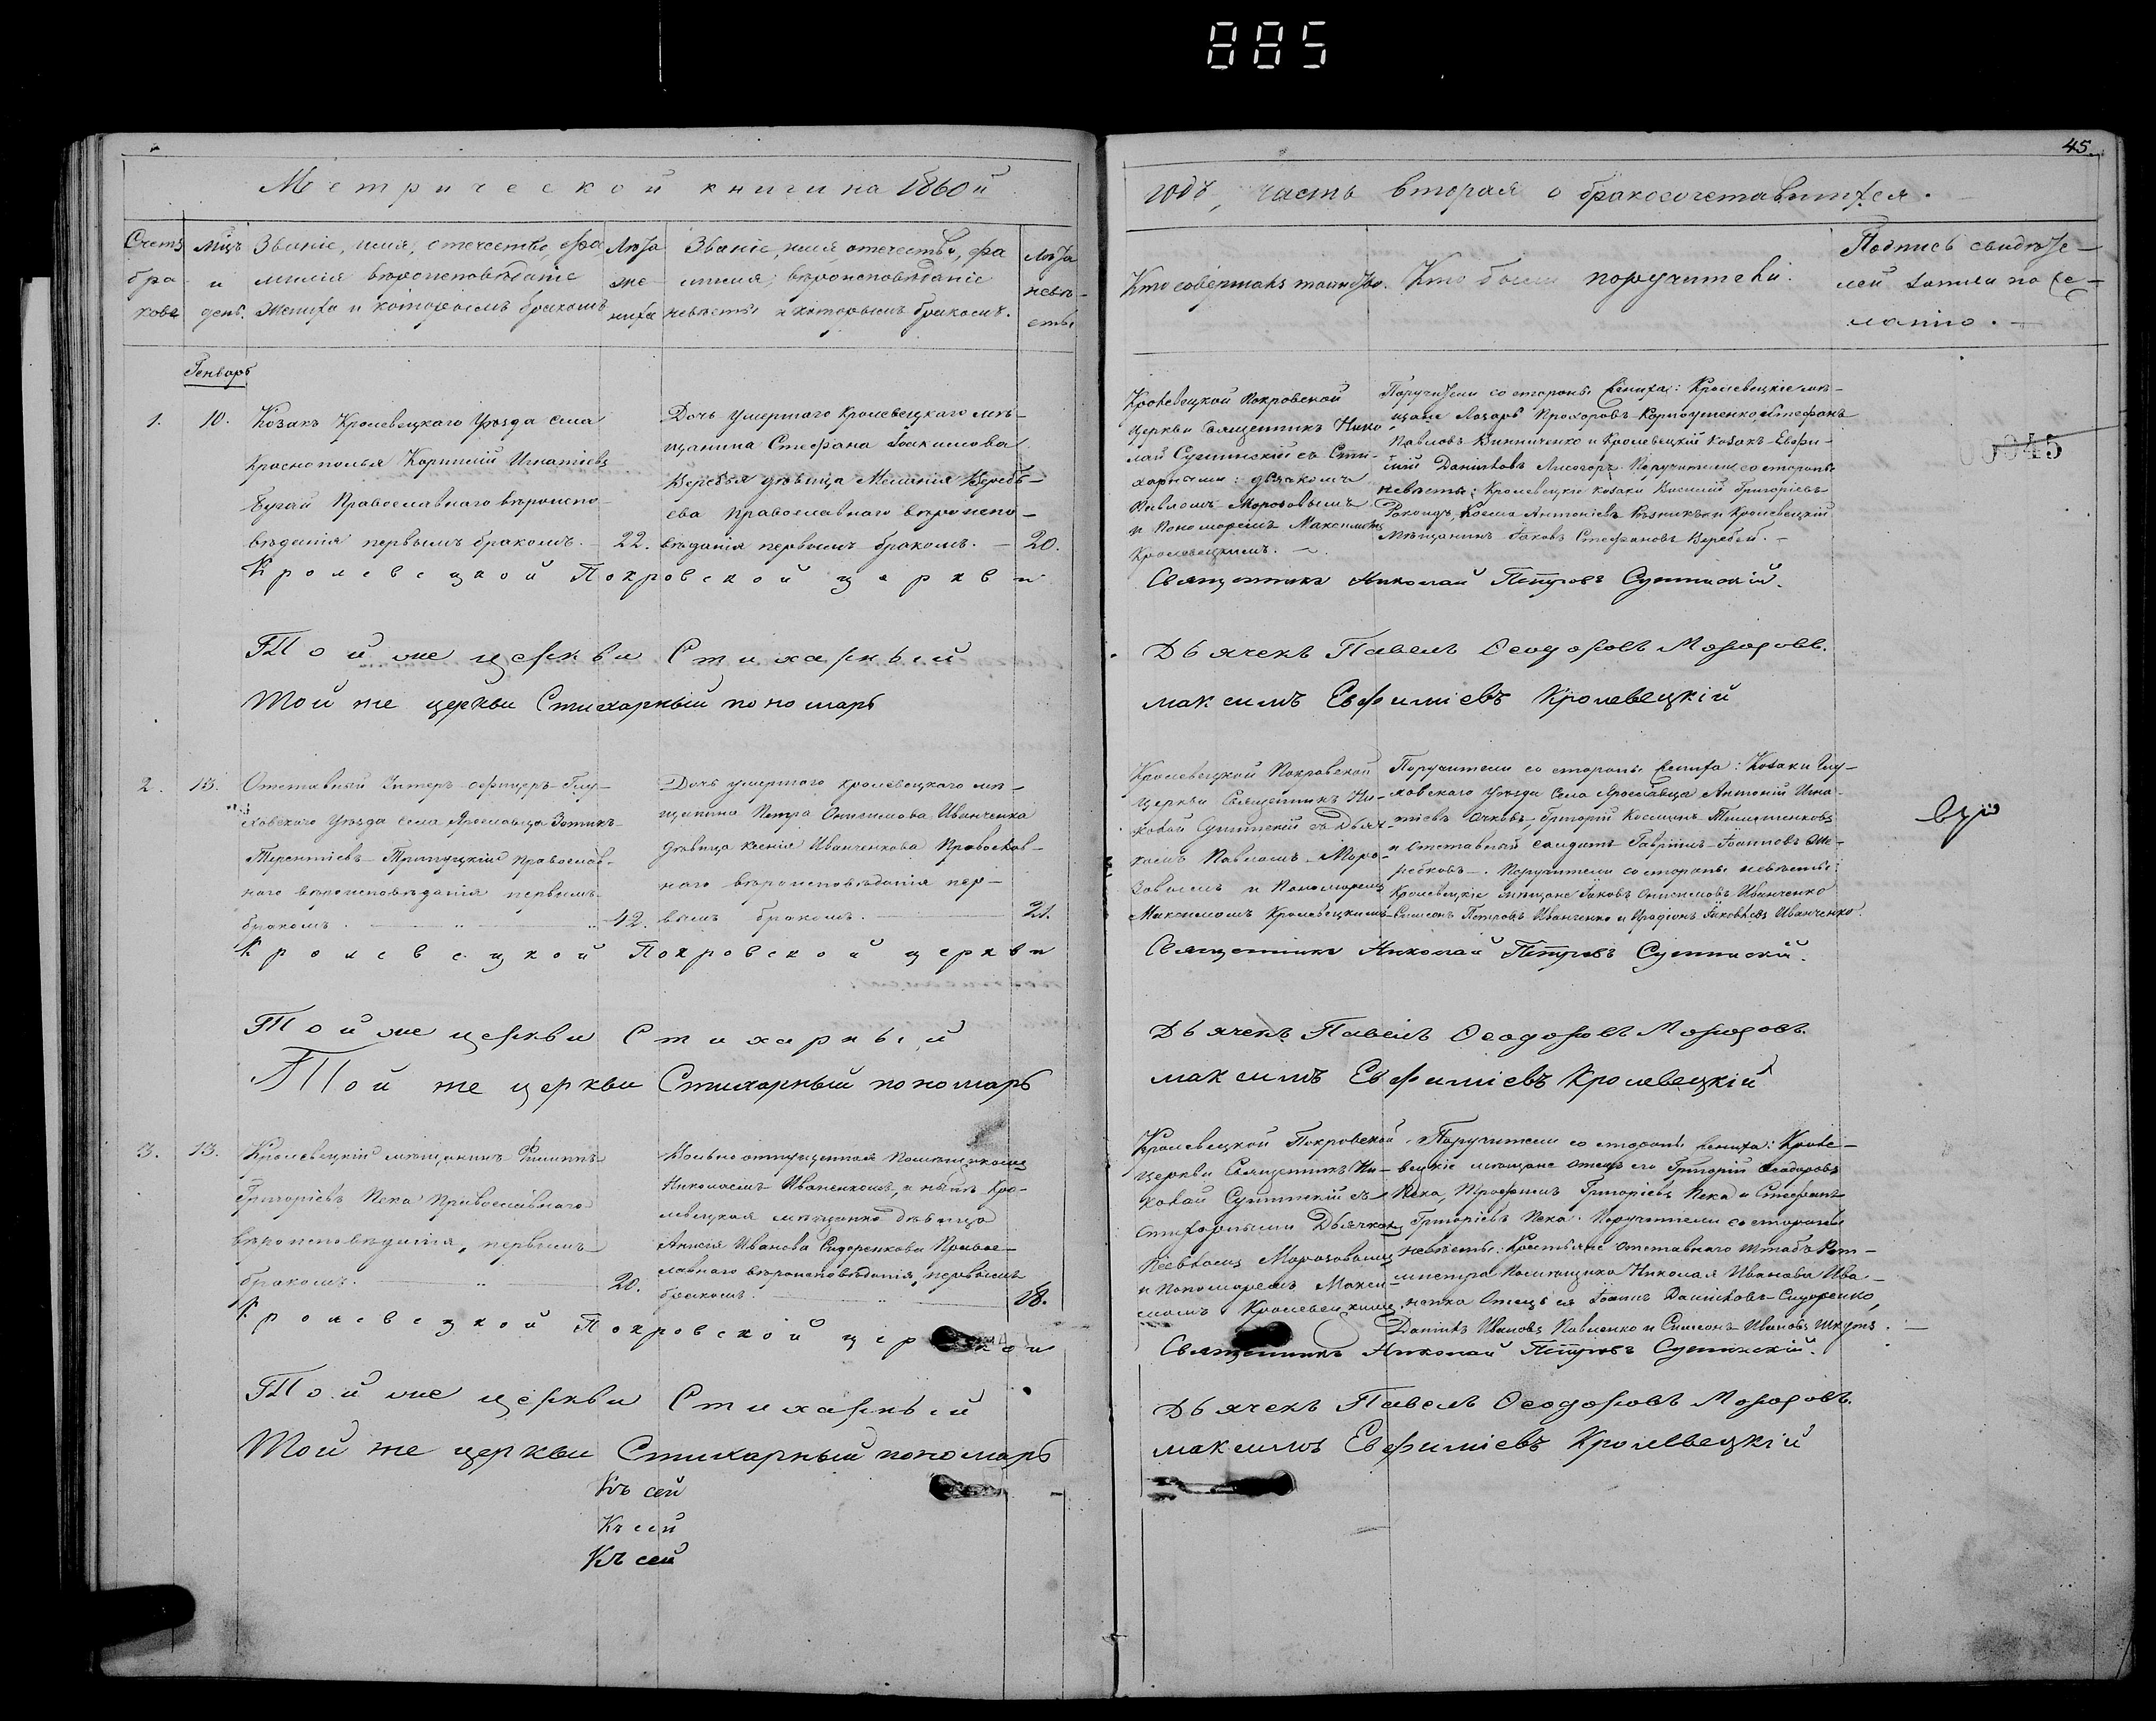 885
45
Метрической книги на 1860й
годъ, часть вторая о бракосочетавшихся.
Счетъ браковъ
Мцъ и день.
Званіе, имя, отечество, фамилія вѣроисповѣданіе жениха и которымъ бракомъ
Лѣта жениха
Званіе, имя, отечество, фамилія, вѣроисповѣданіе невѣсты и которымъ бракомъ.
Лѣта невѣсты
Кто совершалъ таинство.
Кто были поручители.
Подпись свидѣтелей записи по желанію.
Генварь
1.
10.
Козакъ Кролевецкаго Уѣзда села
Краснополья Корнилій Игнатіевъ
Бугай Православнаго вѣроиспо-
вѣданія первымъ бракомъ.
22.
Дочь умершаго Кролевецкаго мѣ-
щанина Стефана Іоакимова
Веребья дѣвица Меланія Вереб-
ева православнаго вѣроиспо-
вѣданія первымъ бракомъ.
20.
Кролевецкой Покровской
церкви Священникъ Нико
лай Сушинскій съ Сти-
харными: дьячкомъ
Павломъ Морозовымъ
и Пономаремъ Максимомъ
Кролевецкимъ.
Поручители со стороны жениха: Кролевецкіе мѣ-
щане Лазарь Прохоровъ Стефанъ
Павловъ Винниченко и Кролевецкій козакъ Евфи-
мій Даниловъ Лисогоръ. Поручители со стороны
невѣсты: Кролевецкіе козаки Василій Григоріевъ
Козма Антоніевъ и Кролевецкій
Мѣщанинъ Іаковъ Стефановъ Веребей.
00045
Кролевецкой Покровской церкви
Священникъ Николай Петровъ Сушинскій.
Той же церкви Стихарный
Дьячекъ Павелъ Ѳеодоровъ Морозовъ.
Той же церкви Стихарный пономарь
Максимъ Евфиміевъ Кролевецкій
2.
13.
Отставный Унтеръ-офицеръ Глу-
ховскаго Уѣзда села Ярославца
Терентіевъ Православ-
наго вѣроисповѣданія первымъ
бракомъ.
42.
Дочь умершаго кролевецкаго мѣ-
щанина Петра Онисимова Иванченка
дѣвица Ксенія Иванченкова Православ-
наго вѣроисповѣданія пер-
вымъ бракомъ.
21.
Кролевецкой Покровской
церкви Священникъ Ни-
колай Сушинскій съ Дьяч-
комъ Павломъ Моро-
зовымъ и Пономаремъ
Максимомъ Кролевецкимъ
Поручители со стороны жениха: Козаки Глу-
ховскаго уѣзда Села Ярославца Антоній Игна-
тіевъ Григорій Косминъ
и отставный солдатъ Гавріилъ Іоанновъ
Поручители со стороны невѣсты:
Кролевецкіе мѣщане Іаковъ Онисимовъ Иванченко
Симеонъ Петровъ Иванченко и Иродіонъ Іаковлевъ Иванченко.
Кролевецкой Покровской церкви
Священникъ Николай Петровъ Сушинскій.
Той же церкви Стихарный
Дьячекъ Павелъ Ѳеодоровъ Морозовъ.
Той же церкви Стихарный пономарь
Максимъ Евфиміевъ Кролевецкій
3.
13.
Кролевецкій мѣщанинъ Филиппъ
Григоріевъ Пека Православнаго
вѣроисповѣданія, первымъ
бракомъ.
20.
Вольноотпущенная Помѣщикомъ
Николаемъ Иваненкомъ, а нынѣ Кро-
левецкая мѣщанка дѣвица
Анисія Иванова Сидоренкова Правос-
лавнаго вѣроисповѣданія, первымъ
бракомъ.
18.
Кролевецкой Покровской
церкви Священникъ Ни-
колай Сушинскій съ
Стихарными Дьячкомъ
Павломъ Морозовымъ
и Пономаремъ Макси-
момъ Кролевецкимъ
Поручители со стороны жениха: Кроле-
вецкіе мѣщане отецъ его Григорій Ѳеодоровъ
Пека, Трофимъ Григоріевъ Пека и Стефанъ
Григоріевъ Пека. Поручители со стороны
невѣсты: Крестьяне отставнаго Штабъ Рот-
мистра Помѣщика Николая Иванова Ива-
ненка Отецъ ея Іоаннъ Даниловъ Сидоренко,
Даніилъ Ивановъ Павленко и Симеонъ Ивановъ
Кролевецкой Покровской церкви
Священникъ Николай Петровъ Сушинскій.
Той же церкви Стихарный
Дьячекъ Павелъ Ѳеодоровъ Морозовъ.
Той же церкви Стихарный пономарь
Максимъ Евфиміевъ Кролевецкій
Къ сей
Къ сей
Къ сей